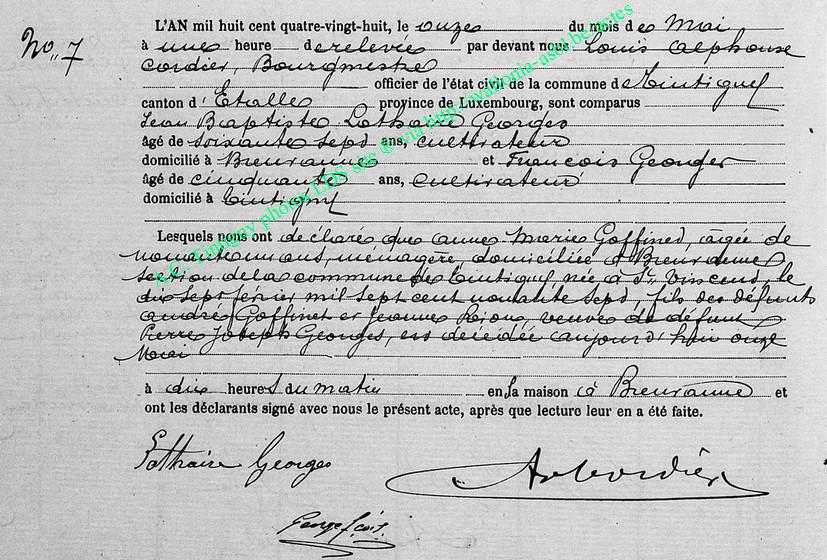 No. 7
L'AN mil huit cent quatre-vingt-huit, le onze du mois de Mai
à une heure de relevée par devant nous Louis Alphonse
Cordier, Bourgmestre
officier de l'état civil de la commune de Tintigny
canton d'Etalle province de Luxembourg, sont comparus
Jean Baptiste Lothaire Georges
âgé de soixante sept ans, cultivateur
domicilié à Breuvanne et François Georges
âgé de cinquante ans, cultivateur
domicilié à Tintigny
Lesquels nous ont déclaré que Anne Marie Goffinet, âgée de
nonante un ans, ménagère, domiciliée à Breuvanne
section de la commune de Tintigny, née à St Vincent, le
dix sept février mil sept cent nonante sept, fils des défunts
André Goffinet et Jeanne veuve de défunt
Pierre Joseph Georges, est décédée aujourd'hui onze
Mai
à dix heures du matin en sa maison à Breuvanne et
ont les déclarants signé avec nous le présent acte, après que lecture leur en a été faite.
Lothaire Georges
Cordier
George fçois.
A.C. Tintigny photos LDS site ® via http://wallonia-asbl.be/notes